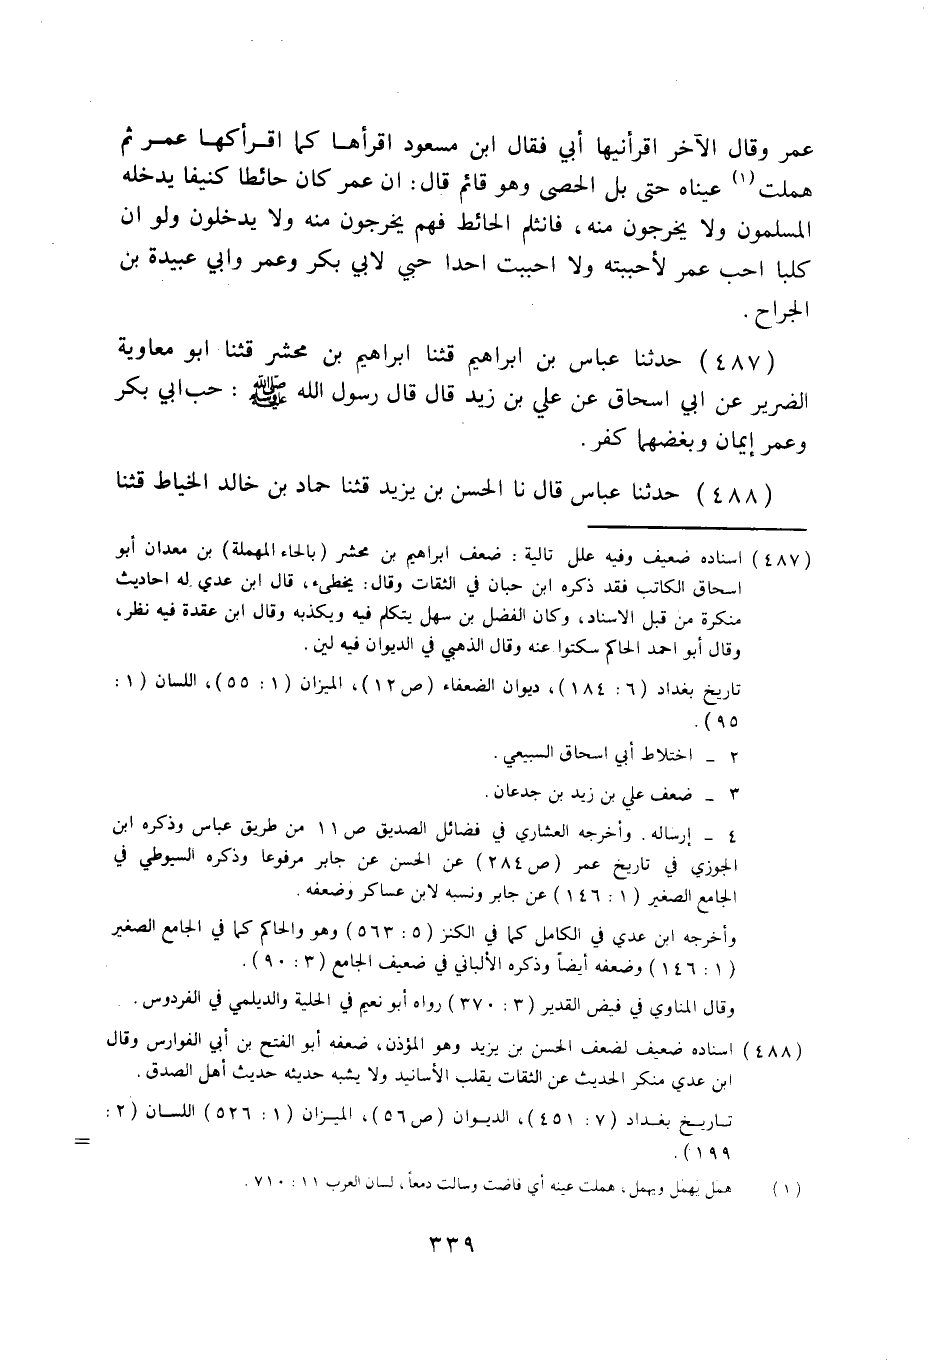 عمر وقال الآخر اقرأنيها أبي فقال ابن مسعود اقرأها كما اقرأكها عمر ثم
هملت(١) عيناه حتى بل الحصى وهو قائم قال: ان عمر كان حائطا كنيفا يدخله
المسلمون ولا يخرجون منه، فانثلم الحائط فهم يخرجون منه ولا يدخلون ولو ان
كلبا احب عمر لأحببته ولا احببت احدا حبي لابي بكر وعمر وابي عبيدة بن
الجراح.
(٤٨٧) حدثنا عباس بن ابراهيم قثنا ابراهيم بن محشر قثنا ابو معاوية
الضرير عن ابي اسحاق عن علي بن زيد قال قال رسول الله ﷺ: حب ابي بكر
وعمر إيمان وبغضهما كفر.
(٤٨٨) حدثنا عباس قال نا الحسن بن يزيد قثنا حماد بن خالد الخياط قثنا
(٤٨٧) اسناده ضعيف وفيه علل تالية: ضعف ابراهيم بن محشر (بالحاء المهملة) بن معدان أبو
اسحاق الكاتب فقد ذكره ابن حبان في الثقات وقال: يخطىء، قال ابن عدي له احاديث
منكرة من قبل الاسناد، وكان الفضل بن سهل يتكلم فيه ويكذبه وقال ابن عقدة فيه نظر،
وقال أبو احمد الحاكم سكتوا عنه وقال الذهبي في الديوان فيه لين.
تاريخ بغداد (٦: ١٨٤)، ديوان الضعفاء (ص١٢)، الميزان (١: ٥٥)، اللسان (١:
٩٥).
٢ ـ اختلاط أبي اسحاق السبيعي.
٣ ـ ضعف علي بن زيد بن جدعان.
٤ ـ إرساله. وأخرجه العشاري في فضائل الصديق ص١١ من طريق عباس وذكره ابن
الجوزي في تاريخ عمر (ص٢٨٤) عن الحسن عن جابر مرفوعا وذكره السيوطي في
الجامع الصغير (١: ١٤٦) عن جابر ونسبه لابن عساكر وضعفه.
وأخرجه ابن عدي في الكامل كما في الكنز (٥: ٥٦٣) وهو والحاكم كما في الجامع الصغير
(١: ١٤٦) وضعفه أيضاً وذكره الألباني في ضعيف الجامع (٣: ٩٠).
وقال المناوي في فيض القدير (٣: ٣٧٠) رواه أبو نعيم في الحلية والديلمي في الفردوس.
(٤٨٨) اسناده ضعيف لضعف الحسن بن يزيد وهو المؤذن، ضعفه أبو الفتح بن أبي الفوارس وقال
ابن عدي منكر الحديث عن الثقات يقلب الأسانيد ولا يشبه حديثه حديث أهل الصدق.
تاريخ بغداد (٧: ٤٥١)، الديوان (ص٥٦)، الميزان (١: ٥٢٦) اللسان (٢:
١٩٩).
=
(١) همل يهمل ويهمل، هملت عينه أي فاضت وسالت دمعاً، لسان العرب ١١: ٧١٠.
٣٣٩